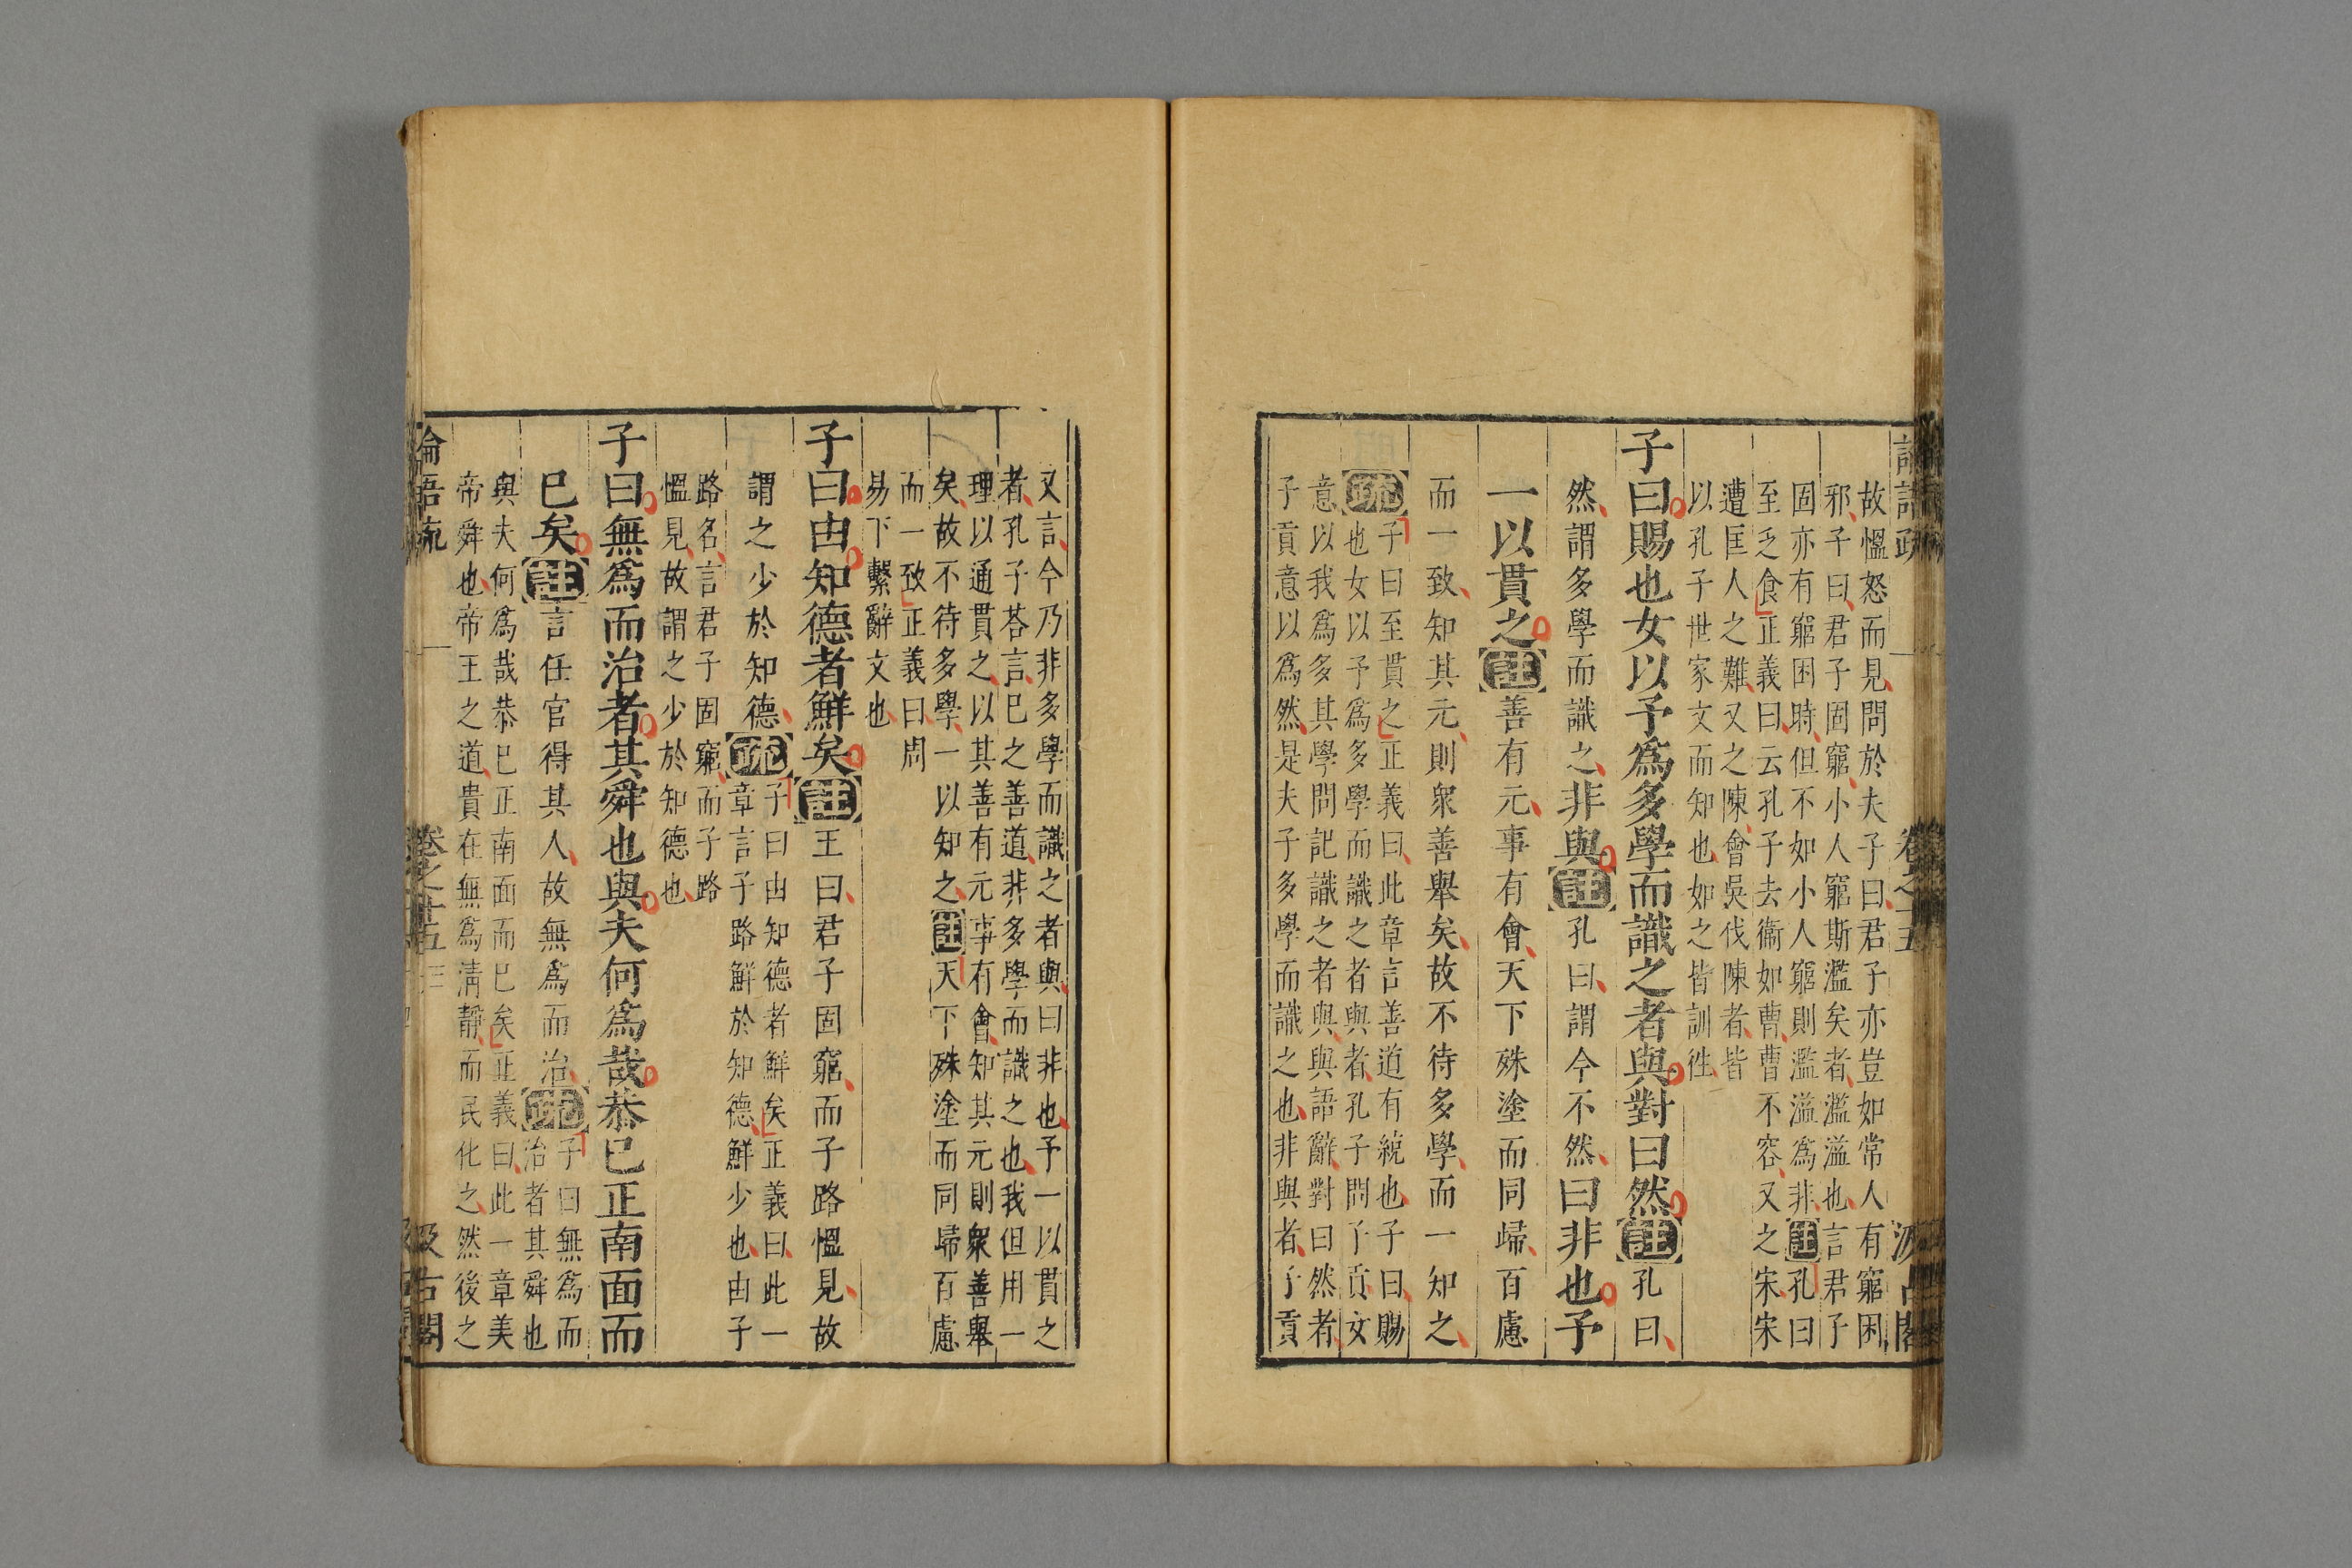 故慍怒而見問於夫子曰君子亦豈如常人有窮困
邪子曰君子固窮小人窮斯濫矣者濫溢也言君子
固亦有窮困時但不如小人窮則濫溢爲非註孔曰
至乏食正義曰云孔子去衞如曹曹不容又之宋宋
遭匡人之難又之陳會吳伐陳者皆
以孔子世家文而知也如之皆訓往
子曰賜也女以予爲多學而識之者與對曰然註孔曰
然謂多學而識之非與註孔曰謂今不然曰非也予
一以貫之註善有元事有會天下殊塗而同歸百慮
而一致知其元則衆善舉矣故不待多學而一知之
疏子曰至貫之正義曰此章言善道有統也子曰賜
也女以予爲多學而識之者與者孔子問子貢女
意以我爲多其學問記識之者與與語辭對曰然者
子貢意以爲然是夫子多學而識之也非與者子貢
又言今乃非多學而識之者與曰非也予一以貫之
者孔子荅言已之善道非多學而識之也我但用一
理以通貫之以其善有元事有會知其元則衆善舉
矣故不待多學一以知之註天下殊塗而同歸百慮
而一致正義曰周
易下繫辭文也
子曰由知德者鮮矣註王曰君子固窮而子路慍見故
謂之少於知德疏子曰由知德者鮮矣正義曰此一
章言子路鮮於知德鮮少也由子
路名言君子固窮而子路
慍見故謂之少於知德也
子曰無爲而治者其舜也與夫何爲哉恭已正南面而
已矣註言任官得其人故無爲而治疏子曰無爲而
治者其舜也
與夫何爲哉恭已正南面而已矣正義曰此一章美
帝舜也帝王之道貴在無爲清靜而民化之然後之
論語疏 卷之十五 三 汲古閣